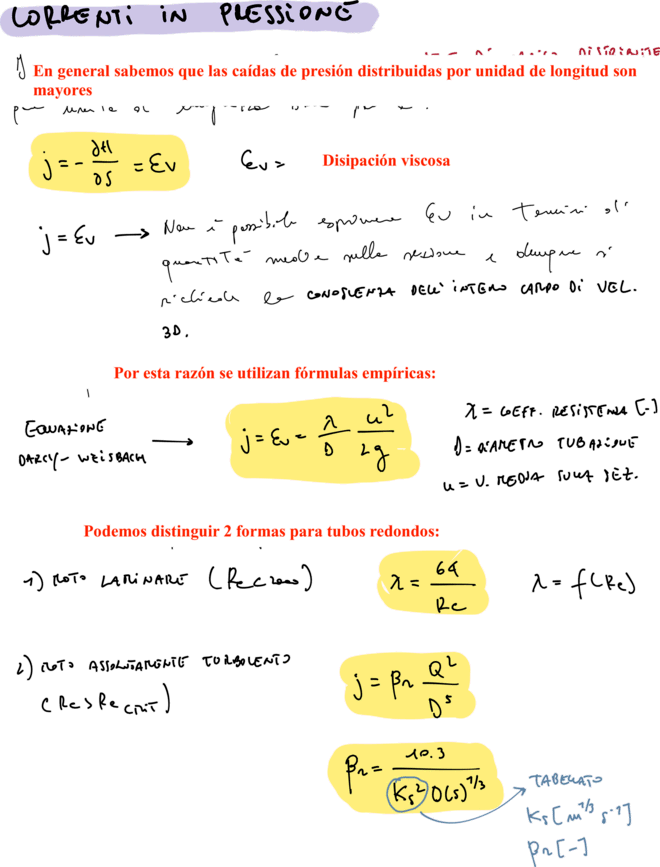 CORRENTI IN PRESSIONE
1) En general sabemos que las caídas de presión distribuidas por unidad de longitud son
mayores
j = - ∂H/∂s = εv    εv = Disipación viscosa
j = εv → Non è possibile esprimere εv in termini di
quantità medie nella sezione e dunque si
richiede la CONOSCENZA DELL'INTERO CAMPO DI VEL.
3D.
Por esta razón se utilizan fórmulas empíricas:
EQUAZIONE DARCY-WEISBACH → j = εv = λ/D u²/2g
λ = COEFF. RESISTENZA [-]
D = DIAMETRO TUBAZIONE
u = V. MEDIA SULLA SEZ.
Podemos distinguir 2 formas para tubos redondos:
1) MOTO LAMINARE (Re<2000)    λ = 64/Re    λ = f(Re)
2) MOTO ASSOLUTAMENTE TURBOLENTO
(Re>Re CRIT)
j = βr Q²/D⁵
βr = 10.3/Ks² D(s)^1/3
TABELLATO
Ks [m^1/3 s⁻¹]
βr [-]